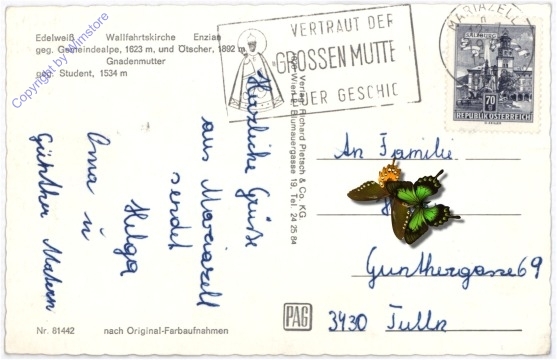 Edelweiß Wallfahrtskirche Enzian
geg. Gemeindealpe, 1623 m, und Ötscher, 1892 m
Gnadenmutter
geg. Student, 1534 m
Copyright by Wimstore
VERTRAUT DER
GROSSEN MUTTE
DER GESCHIC
MARIAZELL
SALZBURG
70
REPUBLIK ÖSTERREICH
Herzliche Grüße
aus Mariazell
sendet
Helga
Oma u
Günther Matern
Verlag Richard Pietsch & Co. KG
Wien Blumauergasse 19, Tel. 24 25 84
An Familie
Gunthergasse 69
3430 Tulln
PAG
Nr. 81442 nach Original-Farbaufnahmen